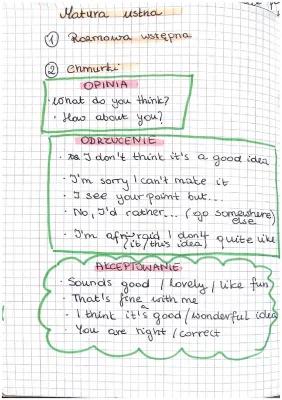 Matura ustna
① Rozmowa wstępna
② Chmurki
OPINIA
· What do you think?
· How about you?
ODRZUCENIE
· I don't think it's a good idea
· I'm sorry I can't make it
· I see your point but...
· No, I'd rather... (go somewhere else)
· I'm afraid I don't quite like
(it/this idea)
AKCEPTOWANIE
· Sounds good / lovely / like fun
· That's fine with me
· I think it's a good/wonderful idea
· You are right / correct